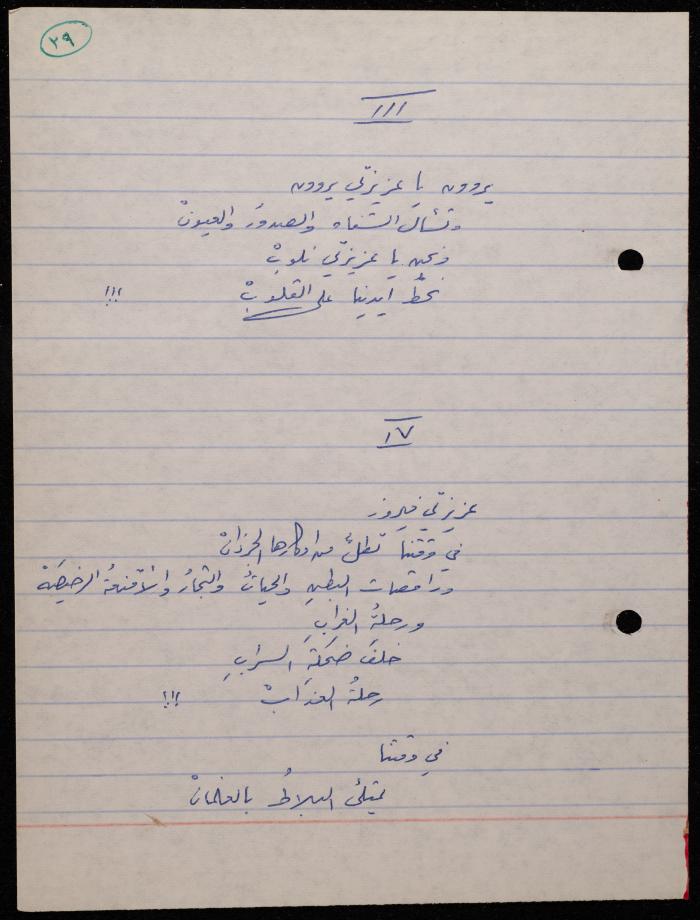 ٢٩
III
يروون يا عزيزتي يروون
وتُسأل الشفاه والصدورُ والعيونْ
ونحن يا عزيزتي نلوبْ
نحطّ ايدينا على القلوبْ !!!
IV
عزيزتي فيروز
في وقتنا تطلُّ من اوكارها الجرذانْ
وراقصات البطنِ والحياتُ والتجارُ والأقنعةُ الرخيصَة
ورحلةُ الغرابِ
خلفَ ضحكةِ السرابِ
رحلةُ العذابْ !!!
في وقتنا
يمتلئ البلاطُ بالغلمانْ